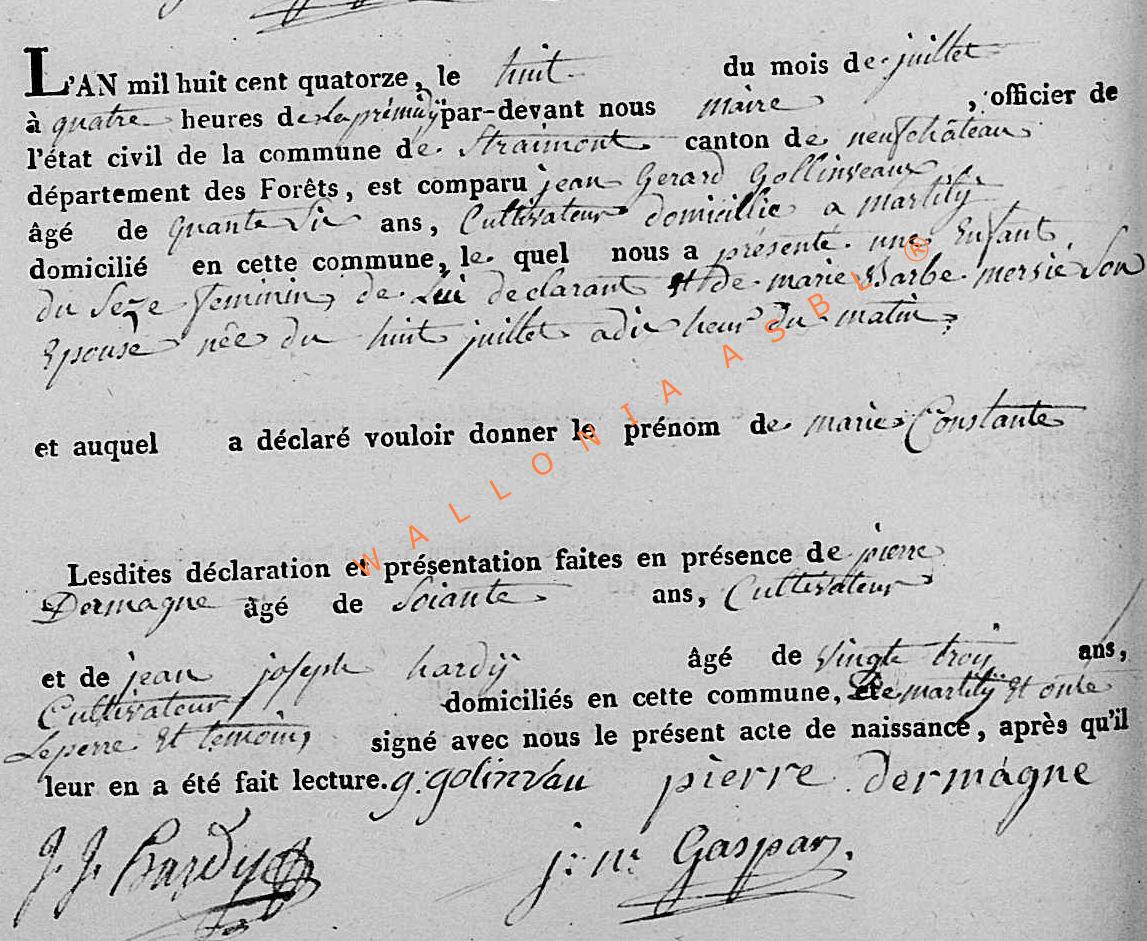 L'AN mil huit cent quatorze, le huit du mois de juillet
à quatre heures de par-devant nous maire, officier de
l'état civil de la commune de Straimont canton de neufchâteau
département des Forêts, est comparu jean Gerard Gollinveaux
âgé de quante Sie ans, Cultivateur domicillié a martilÿ
domicilié en cette commune, le quel nous a présenté une Enfant
du Sexe feminin, de Lui declarant Et de marie Barbe mersie Son
Epouse née du huit juillet a die heur du matin
et auquel a déclaré vouloir donner le prénom de marie Constante
Lesdites déclaration et présentation faites en présence de pierre
Dermagne âgé de Soiante ans, Cultivateur
et de jean joseph hardÿ âgé de vingte troy ans,
Cultivateur domiciliés en cette commune, martilÿ Et onte
Leperre Et temoins signé avec nous le présent acte de naissance, après qu'il
leur en a été fait lecture. g. golinvau pierre dermagne
J. J. hardy j: n: Gaspar
WALLONIA ASBL ®